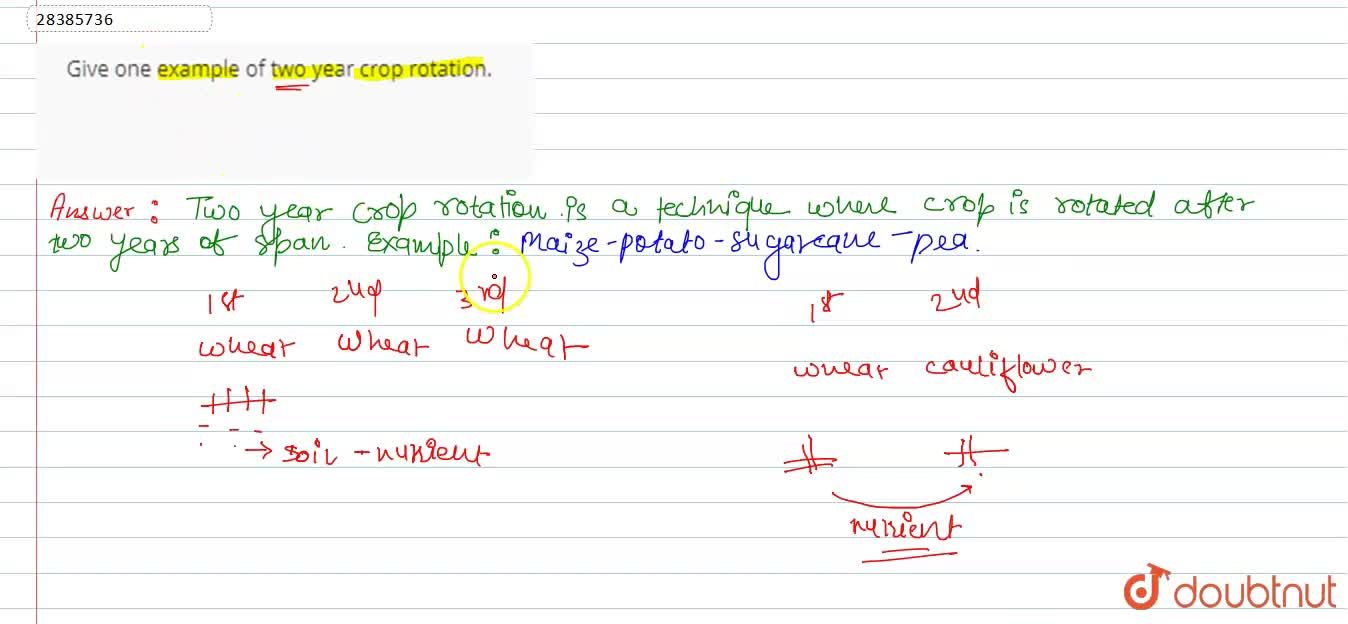 28385736
Give one example of two year crop rotation.
Answer: Two year crop rotation is a technique where crop is rotated after
two years of span. Example: Maize-potato-sugarcane-pea.
1st 2nd 3rd 1st 2nd
wheat wheat wheat
wheat cauliflower
→ soil - nutrient
nutrient
doubtnut